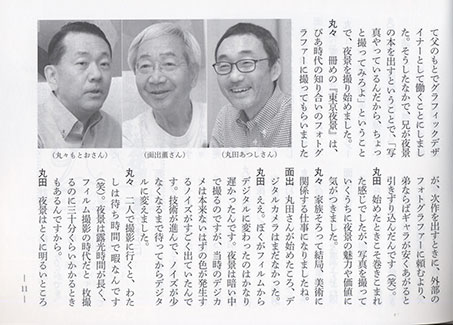 て父のもとでグラフィックデザ
イナーとして働くことにしまし
た。そうしたなかで、兄が夜景
の本を出すということで、「写
真やっているんだから、ちょっ
と撮ってみろよ」ということ
で、夜景を撮り始めました。
丸々　冊めの『東京夜景』は、
ぴあ時代の知り合いのフォトグ
ラファーに撮ってもらいました
（丸々もとおさん）
（面出薫さん）
（丸田あつしさん）
が、次作を出すときに、外部の
フォトグラファーに頼むより、
弟ならばギャラが安くあがると
引きずり込んだんです（笑）。
丸田　始めたときこそ巻きこまれ
た感じでしたが、写真を撮って
いくうちに夜景の魅力や価値に
気がつきました。
丸々　家族そろって結局、美術に
関係する仕事になりましたね。
面出　丸田さんが始めたころ、デ
ジタルカメラはまだなかった。
丸田　ええ。ぼくがフィルムから
デジタルに変わったのはかなり
遅かったんです。夜景は暗い中
で撮るのですが、当時のデジカ
メは本来ないはずの色が発生す
るノイズがすごく出ていたんで
す。技術が進んで、ノイズが少
なくなるまで待ってからデジタ
ルに変えました。
丸々　二人で撮影に行くと、わた
しは待ち時間で暇なんです
（笑）。夜景は露光時間が長く、
フィルム撮影の時代だと一枚撮
るのに三十分くらいかかるとき
もあるんですから。
丸田　夜景はとくに明るいところ
— 11 —